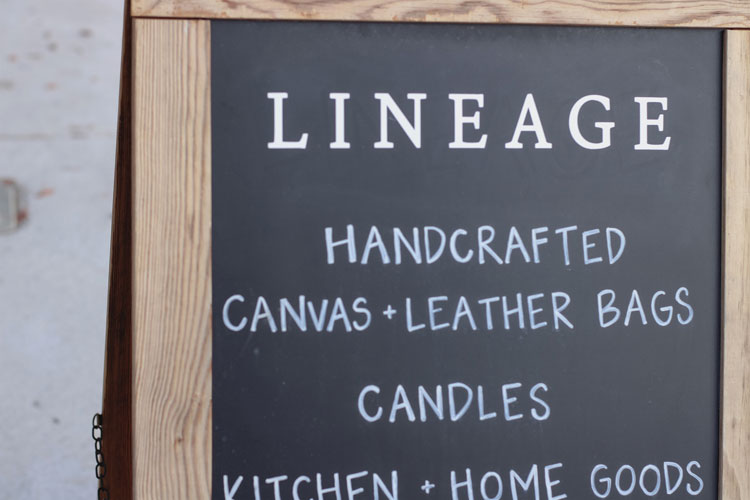 LINEAGE
HANDCRAFTED
CANVAS + LEATHER BAGS
CANDLES
KITCHEN + HOME GOODS